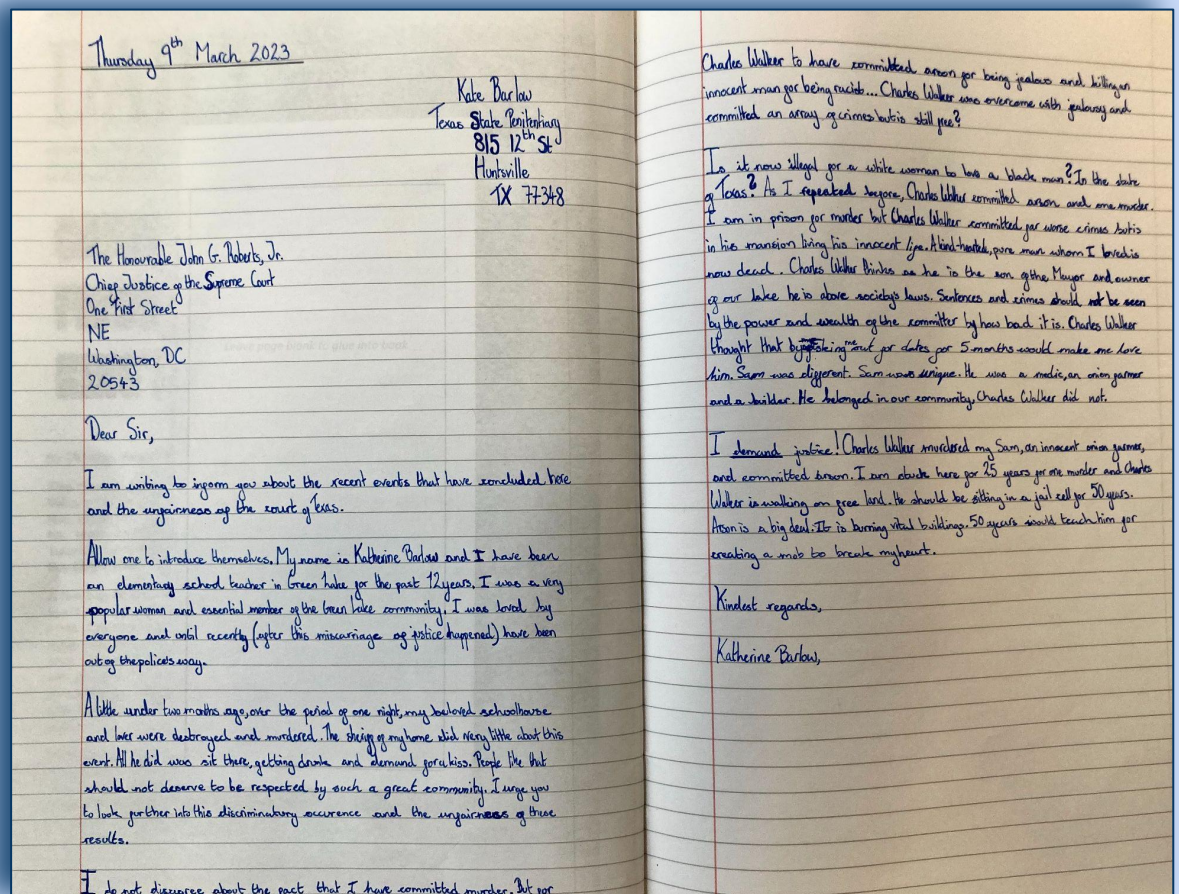 Thursday 9th March 2023
Kate Barlow
Texas State Penitentiary
815 12th St
Huntsville
TX 77348
The Honourable John G. Roberts, Jr.
Chief Justice of the Supreme Court
One First Street
NE
Washington, DC
20543
Dear Sir,
I am writing to inform you about the recent events that have concluded here
and the unfairness of the court of Texas.
Allow one to introduce themselves. My name is Katherine Barlow and I have been
an elementary school teacher in Green Lake for the past 12 years. I was a very
popular woman and essential member of the Green Lake community. I was loved by
everyone and until recently (after this miscarriage of justice happened) have been
out of the police's way.
A little under two months ago, over the period of one night, my beloved schoolhouse
and lover were destroyed and murdered. The sheriff of my home did very little about this
event. All he did was sit there, getting drunk and demand for a kiss. People like that
should not deserve to be respected by such a great community. I urge you
to look further into this discriminatory occurence and the unfairness of these
results.
I do not disagree about the fact that I have committed murder. But for
Charles Walker to have committed arson for being jealous and killing an
innocent man for being racist... Charles Walker was overcome with jealousy and
committed an array of crimes but is still free?
Is it now illegal for a white woman to love a black man? In the state
of Texas? As I repeated before, Charles Walker committed arson and one murder.
I am in prison for murder but Charles Walker committed far worse crimes but is
in his mansion living his innocent life. A kind-hearted, pure man whom I loved is
now dead. Charles Walker thinks as he is the son of the Mayor and owner
of our lake he is above society's laws. Sentences and crimes should not be seen
by the power and wealth of the committer by how bad it is. Charles Walker
thought that by asking me out for dates for 5 months would make me love
him. Sam was different. Sam was unique. He was a medic, an onion farmer
and a builder. He belonged in our community, Charles Walker did not.
I demand justice! Charles Walker murdered my Sam, an innocent onion farmer,
and committed arson. I am stuck here for 25 years for one murder and Charles
Walker is walking on free land. He should be sitting in a jail cell for 50 years.
Arson is a big deal. It is burning vital buildings. 50 years would teach him for
creating a mob to break my heart.
Kindest regards,
Katherine Barlow,